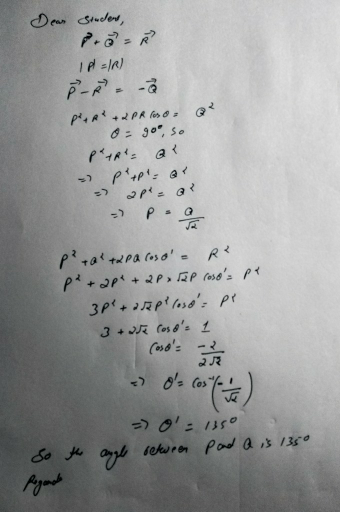 Dear Student,
P⃗ + Q⃗ = R⃗
|P| = |R|
P⃗ - R⃗ = -Q⃗
P² + R² + 2PR Cosθ = Q²
θ = 90°, so
P² + R² = Q²
=> P² + P² = Q²
=> 2P² = Q²
=> P = Q/√2
P² + Q² + 2PQ Cosθ' = R²
P² + 2P² + 2P × √2P Cosθ' = P²
3P² + 2√2P² Cosθ' = P²
3 + 2√2 Cosθ' = 1
Cosθ' = -2/2√2
=> θ' = Cos⁻¹(-1/√2)
=> θ' = 135°
So the angle between P and Q is 135°
Regards